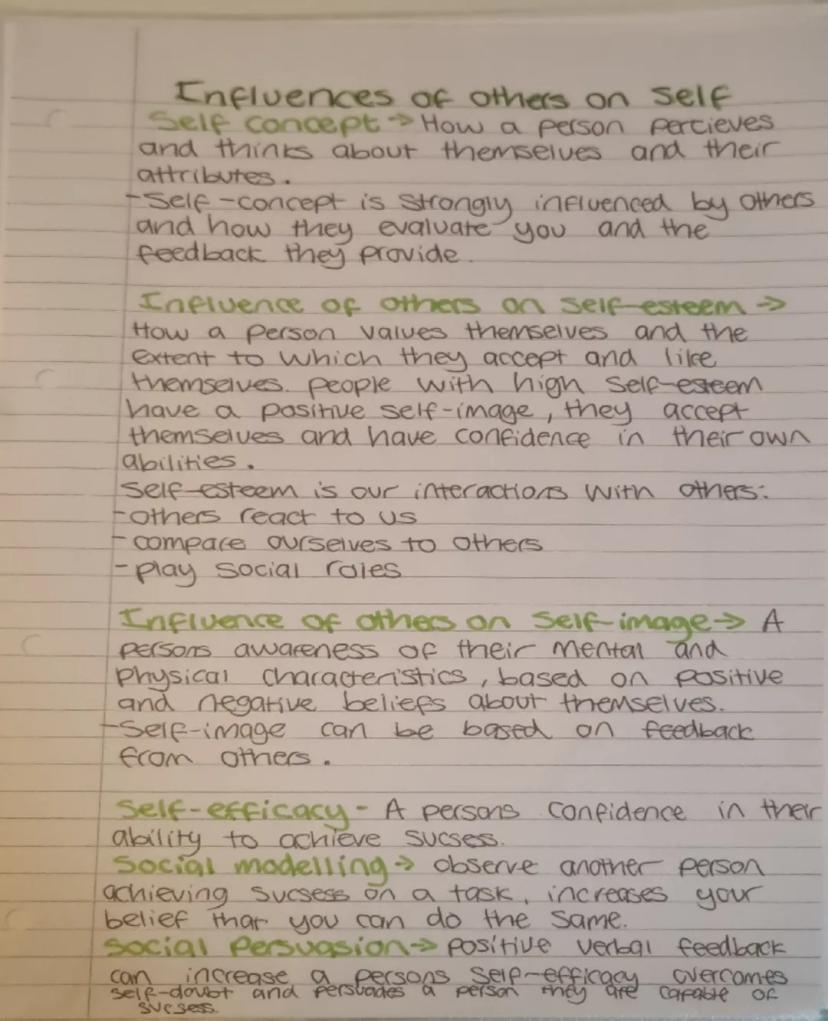 Influences of others on self
Self concept → How a person percieves
and thinks about themselves and their
attributes.
-Self-concept is strongly influenced by others
and how they evaluate you and the
feedback they provide.
Influence of others on self-esteem →
How a person values themselves and the
extent to which they accept and like
themselves. people with high self-esteem
have a positive self-image, they accept
themselves and have confidence in their own
abilities.
Self-esteem is our interactions with others:
-others react to us
- compare ourselves to others
- play social roles
Influence of others on self-image→ A
persons awareness of their mental and
physical characteristics, based on positive
and negative beliefs about themselves.
-Self-image can be based on feedback
from others.
Self-efficacy - A persons confidence in their
ability to achieve sucsess.
Social modelling→ observe another person
achieving sucsess on a task, increases your
belief that you can do the same.
Social Persuasion→ positive verbal feedback
can increase a persons self-efficacy overcomes
self-doubt and persuades a person they are capable of
sucsess.